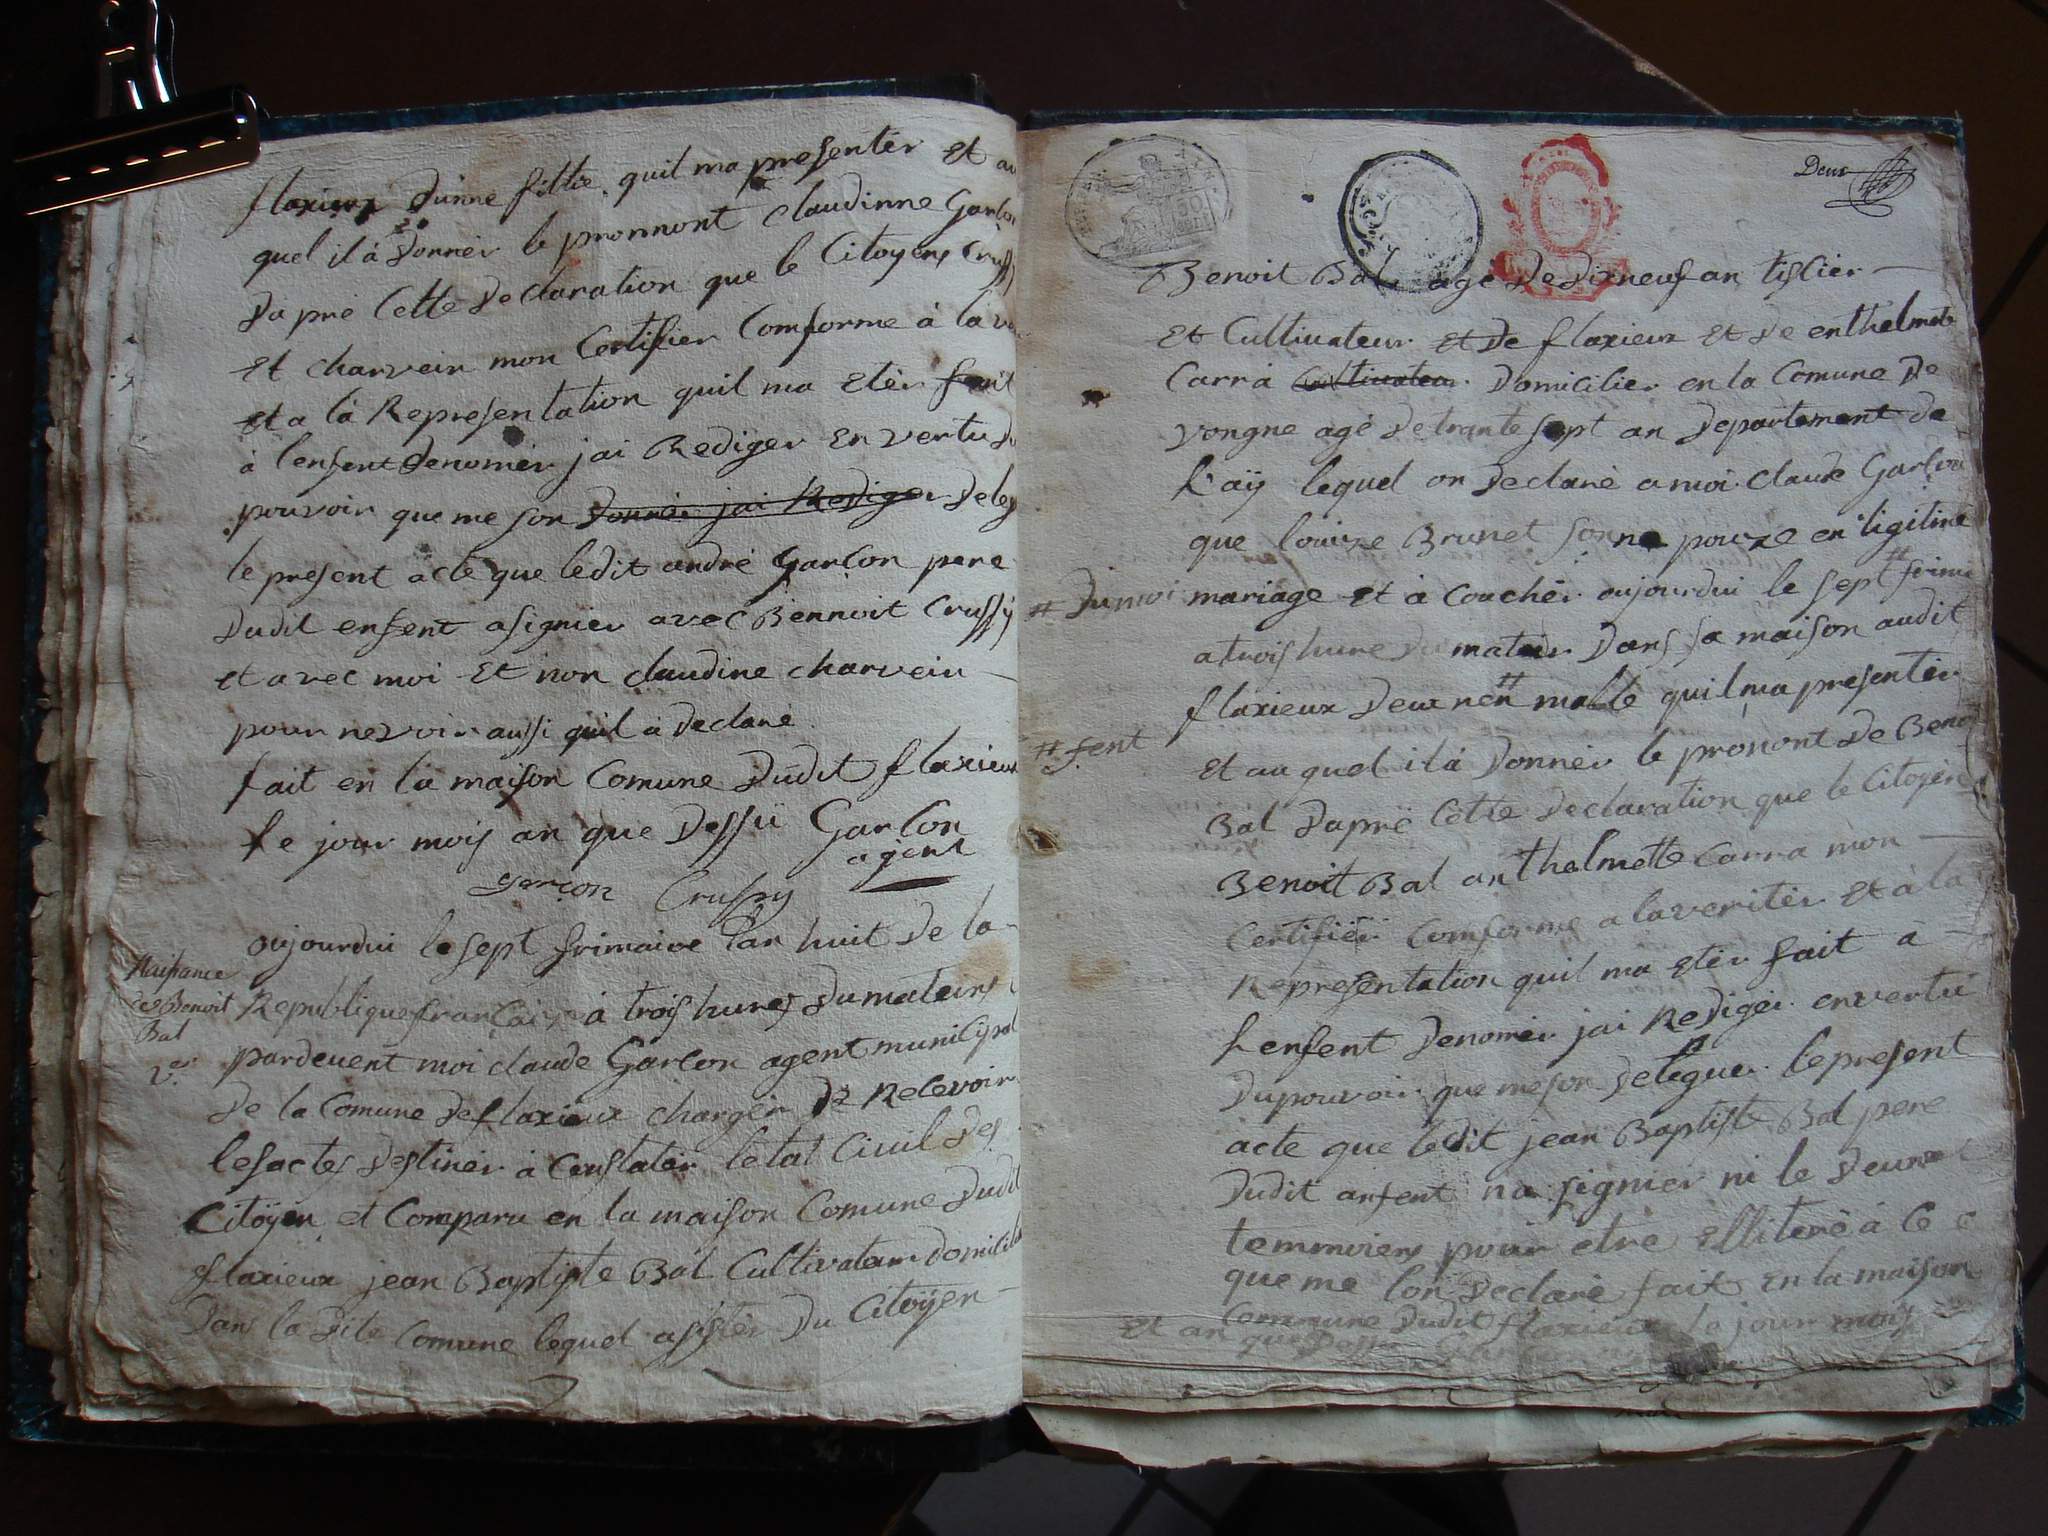 flaxieux dunne fillie quil ma presenter et au
quel il à donnér le pronnont claudinne Garson
dapré cette declaration que le Citoyens Crussy
et charvein mon Certifier Comforme à la
et a la Representation quil ma etér fait
à lenfent denomér jai Rediger en vertu du
pouvoir que me son donnér jai Rediger deleg
le present acte que ledit andré garçon pere
dudit enfent a signier avec Bennoit Crussy
et avec moi et non claudine charvein
pour nezvoir aussi quil à declaré
fait en la maison Comune dudit flaxieux
le jour mois an que dessü Garçon
agent
garçon Crussy
oujourdui le sept frimaire lan huit de la
Naissance
de Benoit
Bal
Republique françaisse à trois hures du mateins
pardevent moi claude Garçon agent municipal
de la Comune de flaxieux chargér de Recevoir
les actes destinér à Constatér letat Civil des
Citöyen et Comparu en la maison Comune dudit
flaxieux jean Baptiste Bal Cultivateur domicilié
dans la dite Comune lequel assistér du Citöyen
Deux
50
Benoit Bal agé de dixneuf an tissier
et Cultivateur et de flaxieux et de enthelmete
Carra Cultivateur domicilier en la Comune de
vongne agé de trante sept an departement de
Laÿ lequel on declaré a moi claude Garçon
que louize Brunet sonne pouze en ligitime
mariage et à Couchér oujourdui le sept # frima
# du moi
a trois hure du mateir dans sa maison audit
flaxieux deux nen # malle quil ma presentér
# fent
et au quel il à donnér le pronont de Benoit
Bal daprë Cette declaration que le Citoyens
Benoit Bal anthelmette Carra mon
Certifiér Comforme a la veritér et à la
Representation quil ma etér fait à
Lenfent denomér jai Redigér en vertu
du pouvoir que me son deleguer le present
acte que ledit jean Baptiste Bal pere
dudit anfent na signier ni le deux
temmoiens pour etre ellitéré à ce
que me lon declaré fait en la maison
Commune dudit flaxieux le jour mois
et an que dessu